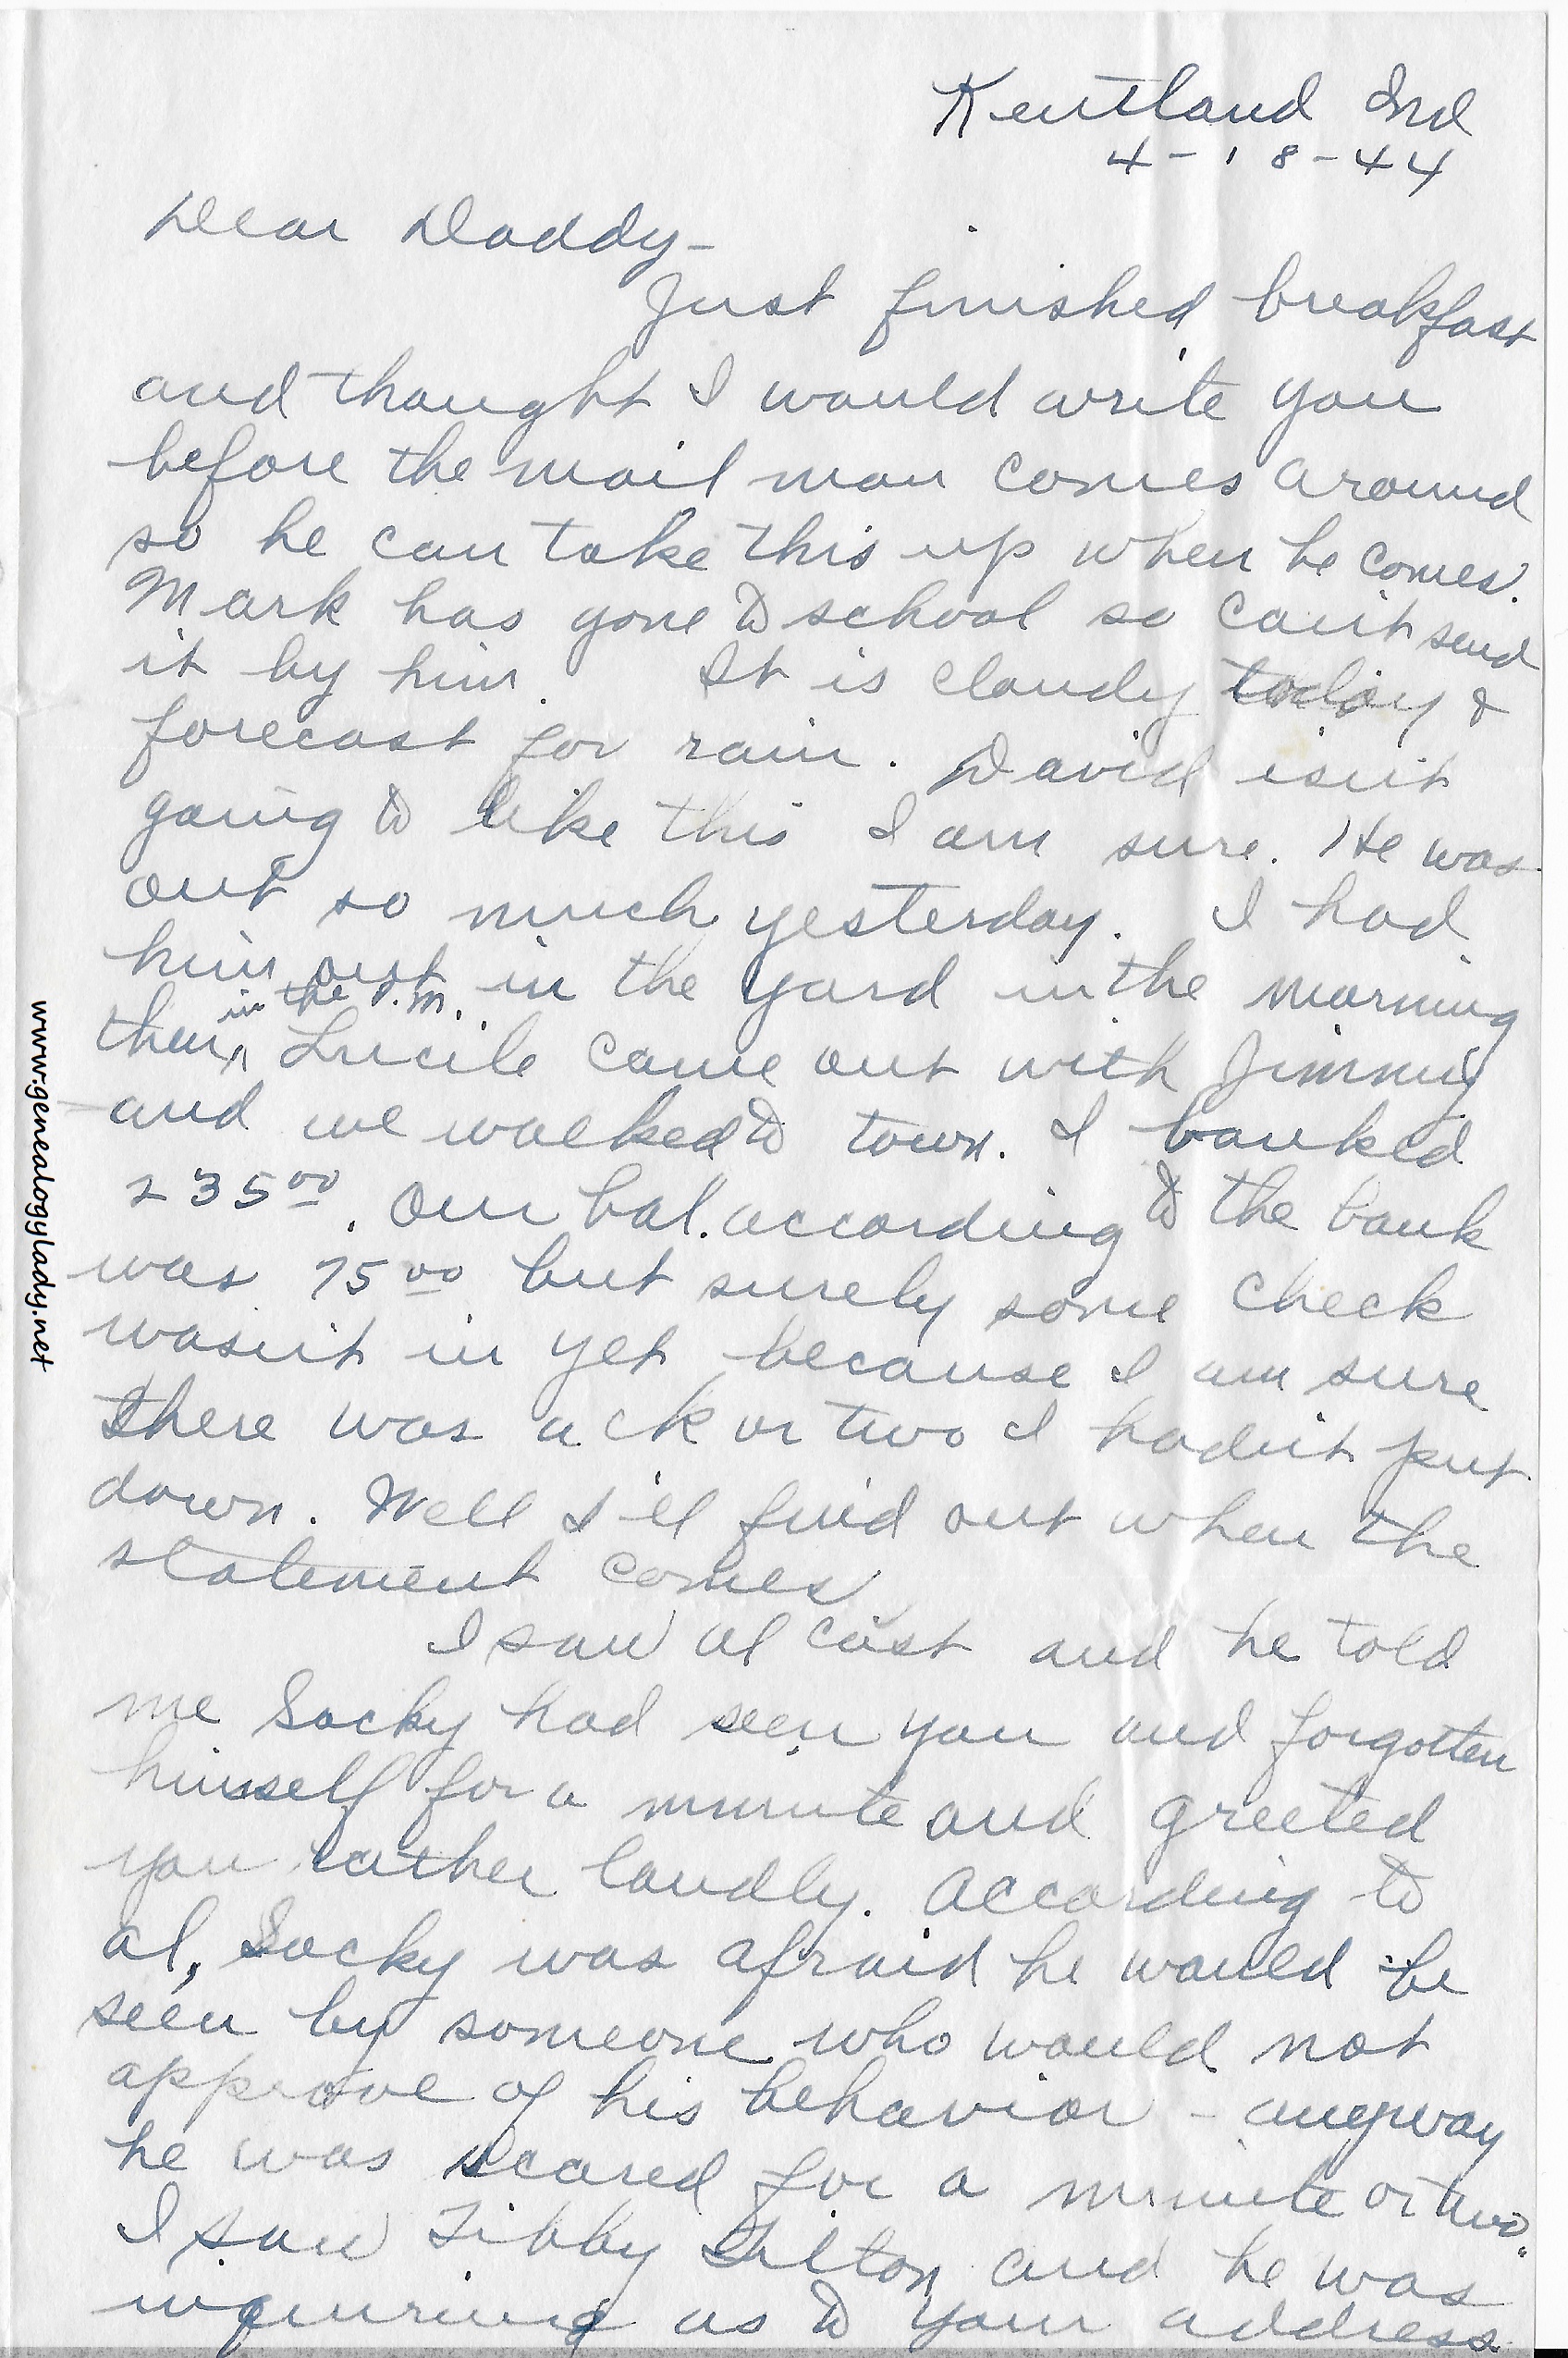 Kentland Ind
4-18-44
Dear Daddy-
Just finished breakfast
and thought I would write you
before the mail man comes around
so he can take this up when he comes.
Mark has gone to school so can't send
it by him. It is cloudy today &
forecast for rain. David isn't
going to like this I am sure. He was
out so much yesterday. I had
him out in the yard in the morning
then in the P.M. Lucile came out with Jimmy
and we walked to town. I banked
235 00. Our bal. according to the bank
was 75 00 but surely some check
wasn't in yet because I am sure
there was a ck or two I hadn't put
down. Well I'll find out when the
statement comes
I saw Al Cast and he told
me Socky had seen you and forgotten
himself for a minute and greeted
you rather loudly. According to
Al, Socky was afraid he would be
seen by someone who would not
approve of his behavior - anyway
he was scared for a minute or two.
I saw Tibby and he was
inquiring as to your address
www.genealogylady.net